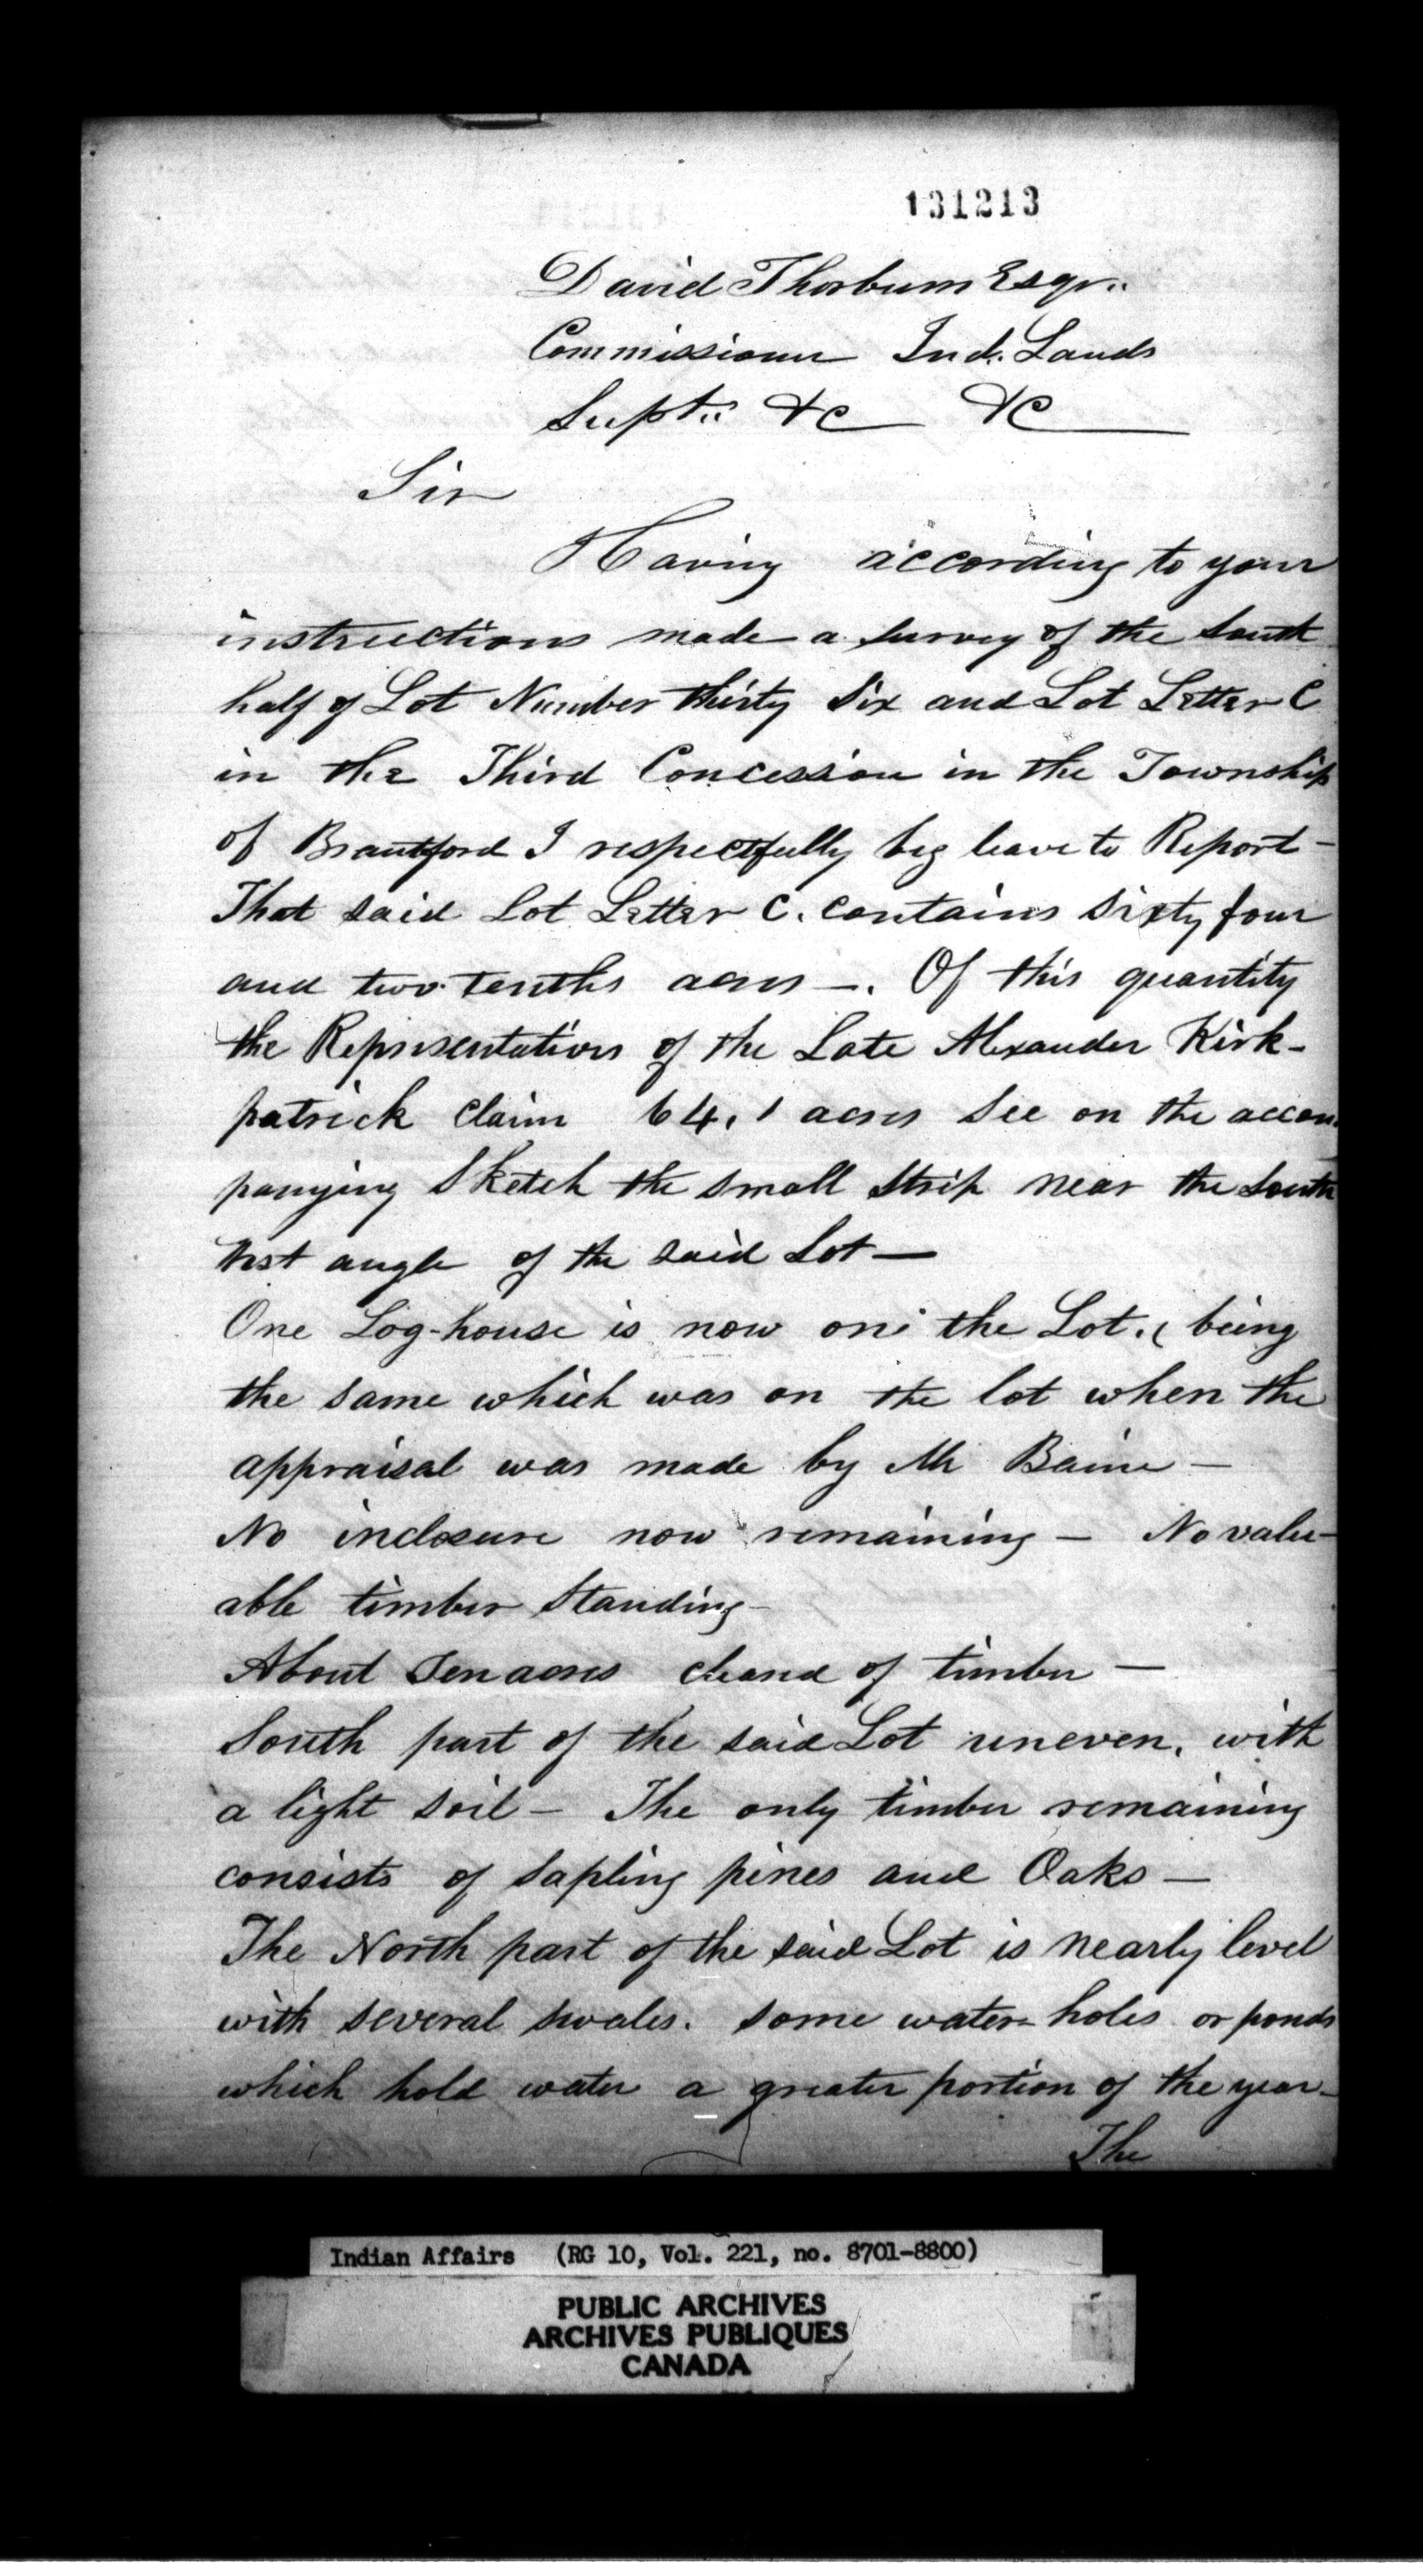 131213
David Thorburn Esqr.
Commissioner Ind. Lands
Supt. &c &c
Sir
Having according to your
instructions made a survey of the South
half of Lot Number thirty six and Lot Letter C
in the Third Concession in the Township
of Brantford I respectfully beg leave to Report -
That said Lot Letter C. contains sixty four
and two tenths acres -. Of this quantity
the Representatives of the Late Alexander Kirk-
patrick claim 64,1 acres See on the accom
panying Sketch the small strip near the South
West angle of the said Lot -
One Log-house is now on the Lot., being
the same which was on the lot when the
appraisal was made by Mr
No inclosure now remaining - No valu-
able timber Standing -
About Ten acres cleared of timber -
South part of the said Lot uneven, with
a light soil - The only timber remaining
consists of sapling pines and Oaks -
The North part of the said Lot is nearly level
with several swales. some water-holes or ponds
which hold water a greater portion of the year -
The
Indian Affairs (RG 10, Vol. 221, no. 8701-8800)
PUBLIC ARCHIVES
ARCHIVES PUBLIQUES
CANADA